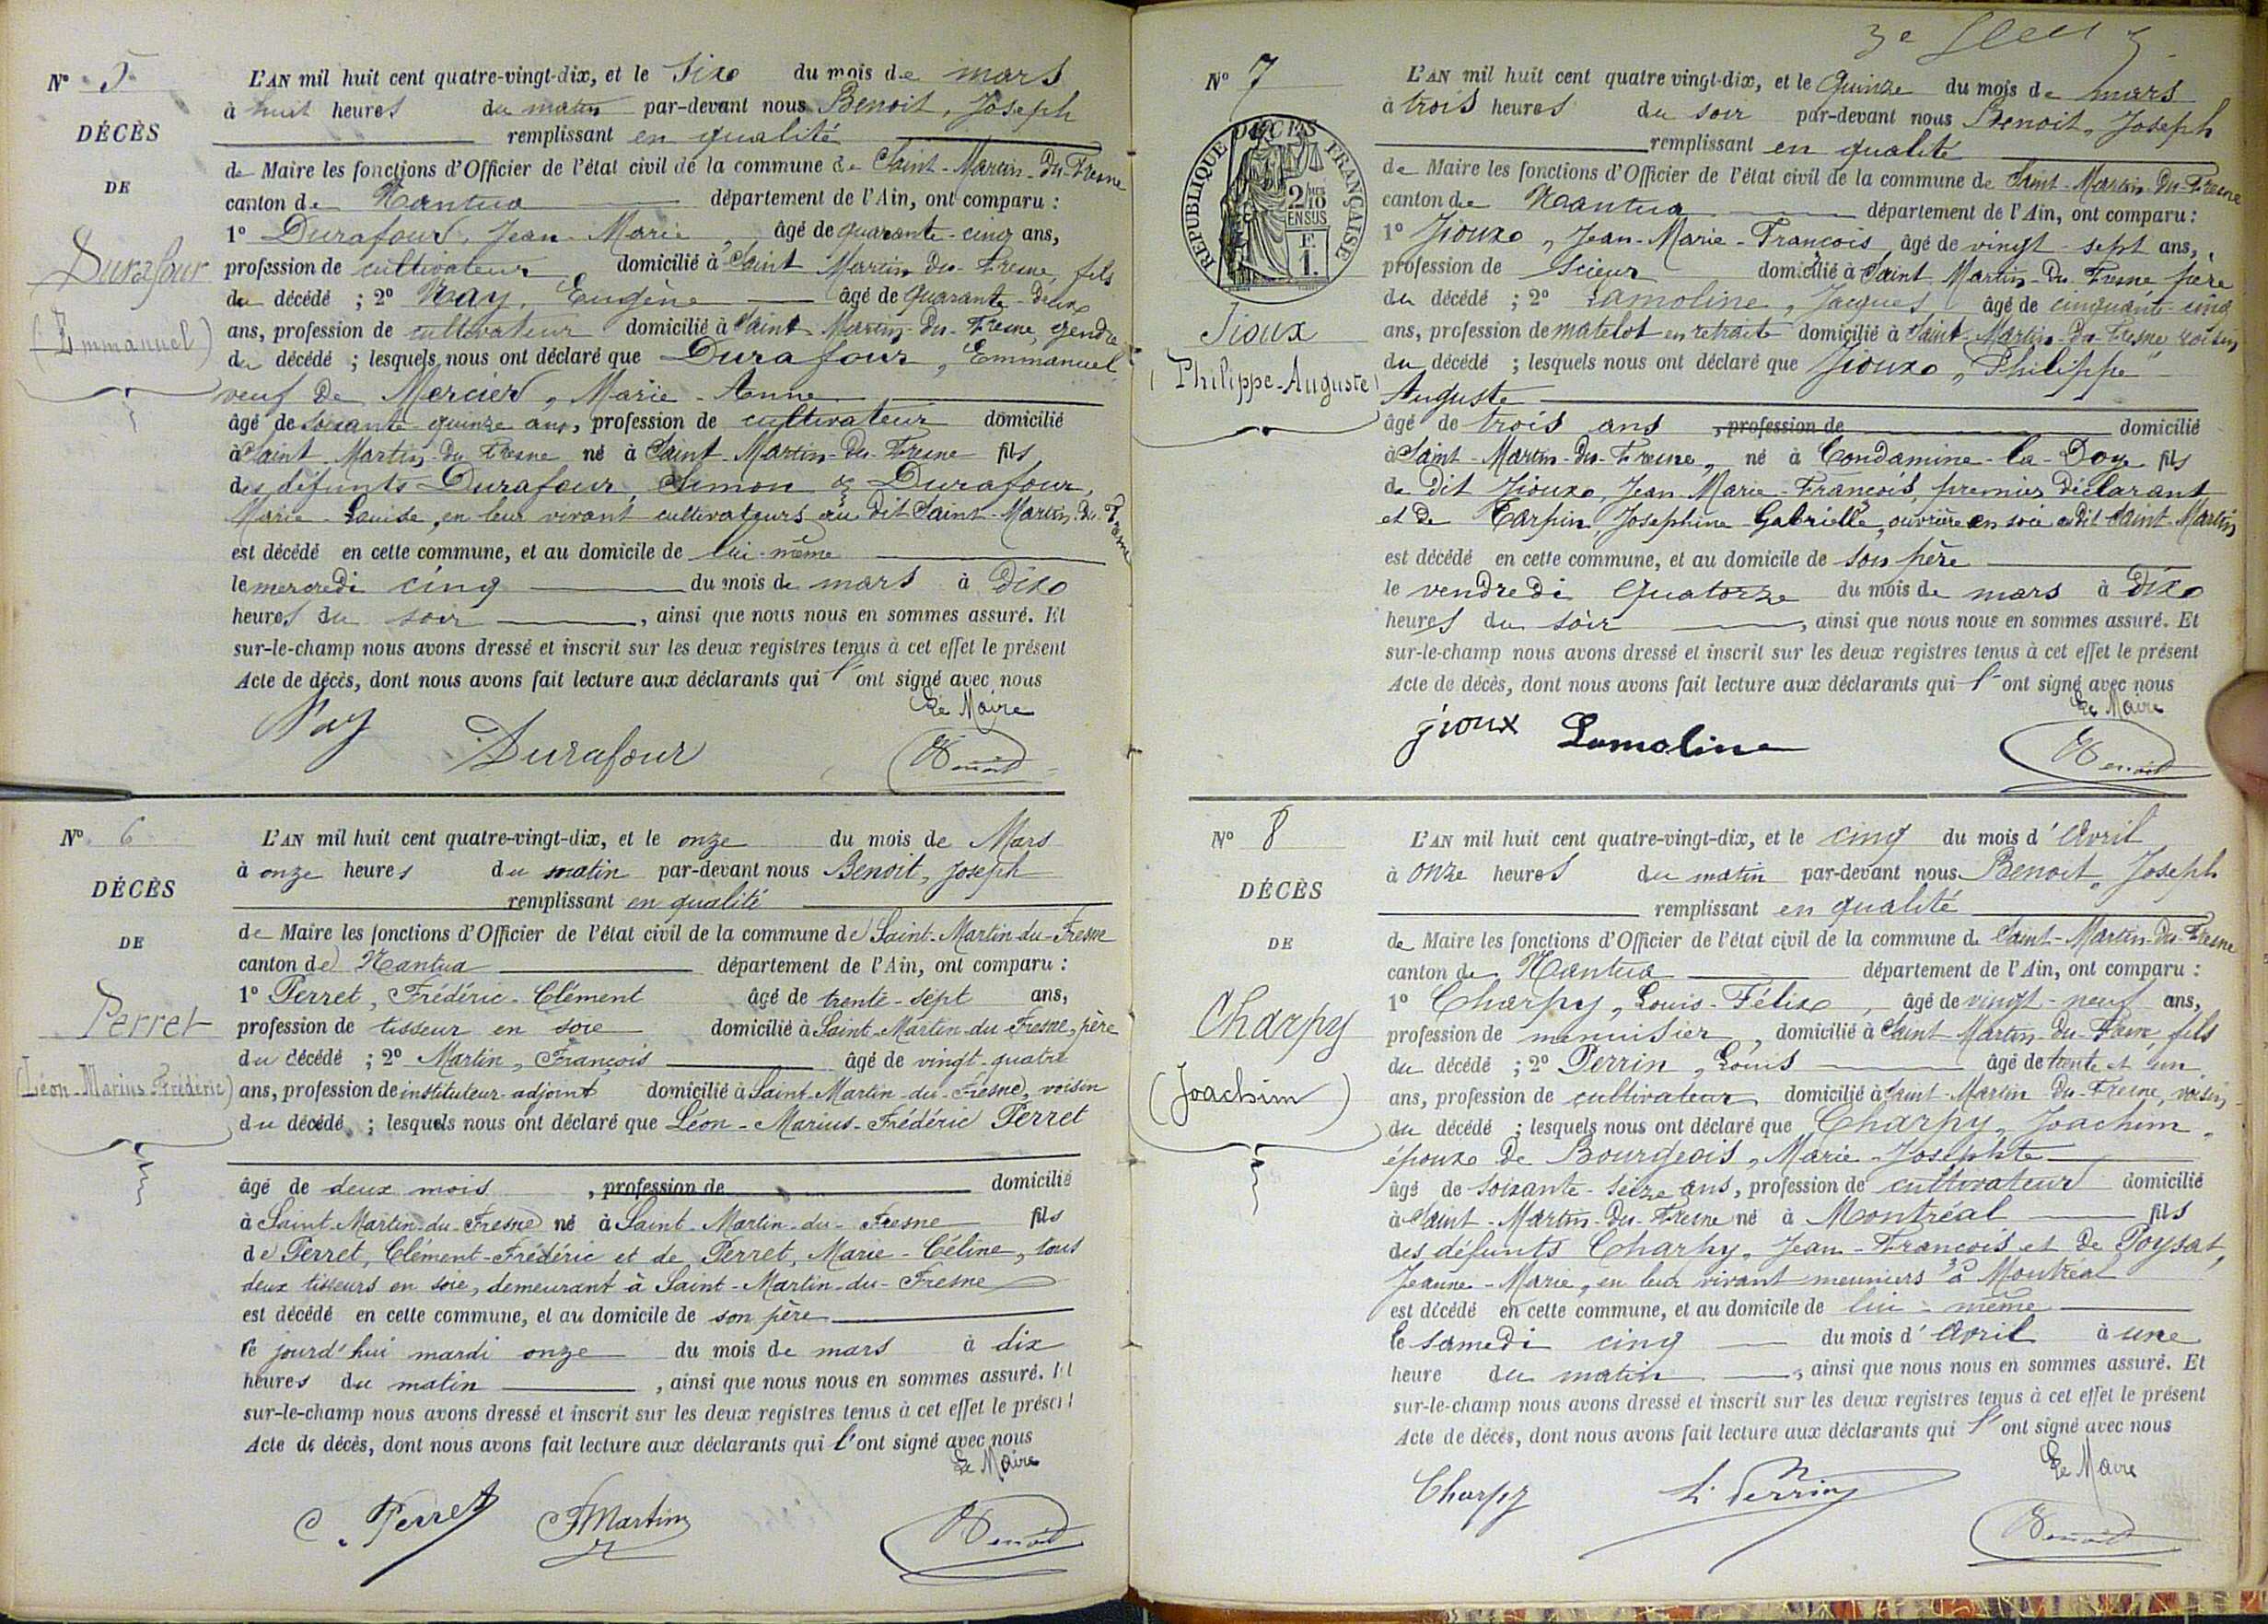 N° 5
DÉCÈS
DE
Durafour
(Emmanuel)
L'AN mil huit cent quatre-vingt-dix, et le six du mois de mars
à huit heures du matin par-devant nous Benoit, Joseph
remplissant en qualité
de Maire les fonctions d'Officier de l'état civil de la commune de Saint-Martin-du-Fresne
canton de Nantua département de l'Ain, ont comparu :
1° Durafour, Jean-Marie, âgé de quarante-cinq ans,
profession de cultivateur domicilié à Saint Martin du-Fresne, fils
du décédé ; 2° Nay, Eugène âgé de quarante-deux
ans, profession de cultivateur domicilié à Saint Martin-du-Fresne, gendre
du décédé ; lesquels nous ont déclaré que Durafour, Emmanuel
veuf de Mercier, Marie-Anne
âgé de soixante quinze ans, profession de cultivateur domicilié
à Saint Martin-du Fresne né à Saint-Martin-du-Fresne fils
des défunts Durafour, Simon & Durafour,
Marie-Louise, en leur vivant cultivateurs au dit Saint-Martin-du-Fresne
est décédé en cette commune, et au domicile de lui-même
le mercredi cinq du mois de mars à dix
heures du soir, ainsi que nous nous en sommes assuré. Et
sur-le-champ nous avons dressé et inscrit sur les deux registres tenus à cet effet le présent
Acte de décès, dont nous avons fait lecture aux déclarants qui l'ont signé avec nous
Le Maire
Nay Durafour Benoit
N° 6
DÉCÈS
DE
Perret
(Léon-Marius-Frédéric)
L'AN mil huit cent quatre-vingt-dix, et le onze du mois de Mars
à onze heures du matin par-devant nous Benoit, Joseph
remplissant en qualité
de Maire les fonctions d'Officier de l'état civil de la commune de Saint-Martin-du-Fresne
canton de Nantua département de l'Ain, ont comparu :
1° Perret, Frédéric-Clément âgé de trente-sept ans,
profession de tisseur en soie domicilié à Saint-Martin-du-Fresne, père
du décédé ; 2° Martin, François âgé de vingt-quatre
ans, profession de instituteur-adjoint domicilié à Saint-Martin-du-Fresne, voisin
du décédé ; lesquels nous ont déclaré que Léon-Marius-Frédéric Perret
âgé de deux mois, profession de domicilié
à Saint-Martin-du-Fresne né à Saint-Martin-du-Fresne fils
de Perret, Clément-Frédéric et de Perret, Marie-Céline, tous
deux tisseurs en soie, demeurant à Saint-Martin-du-Fresne
est décédé en cette commune, et au domicile de son père
ce jourd'hui mardi onze du mois de mars à dix
heures du matin, ainsi que nous nous en sommes assuré. Et
sur-le-champ nous avons dressé et inscrit sur les deux registres tenus à cet effet le présent
Acte de décès, dont nous avons fait lecture aux déclarants qui l'ont signé avec nous
Le Maire
C. Perret FMartin Benoit
N° 7
RÉPUBLIQUE FRANÇAISE
2/10
EN SUS
F.
1.
Jioux
(Philippe-Auguste)
L'AN mil huit cent quatre vingt-dix, et le quinze du mois de mars
à trois heures du soir par-devant nous Benoit, Joseph
remplissant en qualité
de Maire les fonctions d'Officier de l'état civil de la commune de Saint-Martin-du-Fresne
canton de Nantua département de l'Ain, ont comparu :
1° Jioux, Jean-Marie-François, âgé de vingt-sept ans,
profession de scieur domicilié à Saint Martin-du Fresne père
du décédé ; 2° Lamoline, Jacques âgé de cinquante-cinq
ans, profession de matelot en retraite domicilié à Saint-Martin-du-Fresne voisin
du décédé ; lesquels nous ont déclaré que Jioux, Philippe
Auguste
âgé de trois ans, profession de domicilié
à Saint-Martin-du-Fresne, né à Condamine-la-Doye fils
de dit Jioux, Jean-Marie-François, premier déclarant
et de Carpin, Josephine Gabrielle, ouvrière en soie audit Saint-Martin
est décédé en cette commune, et au domicile de son père
le vendredi quatorze du mois de mars à dix
heures du soir, ainsi que nous nous en sommes assuré. Et
sur-le-champ nous avons dressé et inscrit sur les deux registres tenus à cet effet le présent
Acte de décès, dont nous avons fait lecture aux déclarants qui l'ont signé avec nous
Le Maire
jioux Lamoline Benoit
N° 8
DÉCÈS
DE
Charpy
(Joachim)
L'AN mil huit cent quatre-vingt-dix, et le cinq du mois d'Avril
à onze heures du matin par-devant nous Benoit, Joseph
remplissant en qualité
de Maire les fonctions d'Officier de l'état civil de la commune de Saint-Martin-du-Fresne
canton de Nantua département de l'Ain, ont comparu :
1° Charpy, Louis-Félix, âgé de vingt-neuf ans,
profession de menuisier, domicilié à Saint Martin-du-Fresne, fils
du décédé ; 2° Perrin, Louis âgé de trente et un
ans, profession de cultivateur domicilié à Saint-Martin du-Fresne, voisin
du décédé ; lesquels nous ont déclaré que Charpy, Joachim,
époux de Bourgeois, Marie-Josephte
âgé de soixante-seize ans, profession de cultivateur domicilié
à Saint-Martin-du-Fresne né à Montréal fils
des défunts Charpy, Jean-François et de Poysat,
Jeanne-Marie, en leur vivant meuniers à Montréal
est décédé en cette commune, et au domicile de lui-même
le samedi cinq du mois d'Avril à une
heure du matin, ainsi que nous nous en sommes assuré. Et
sur-le-champ nous avons dressé et inscrit sur les deux registres tenus à cet effet le présent
Acte de décès, dont nous avons fait lecture aux déclarants qui l'ont signé avec nous
Le Maire
Charpy L. Perrin Benoit